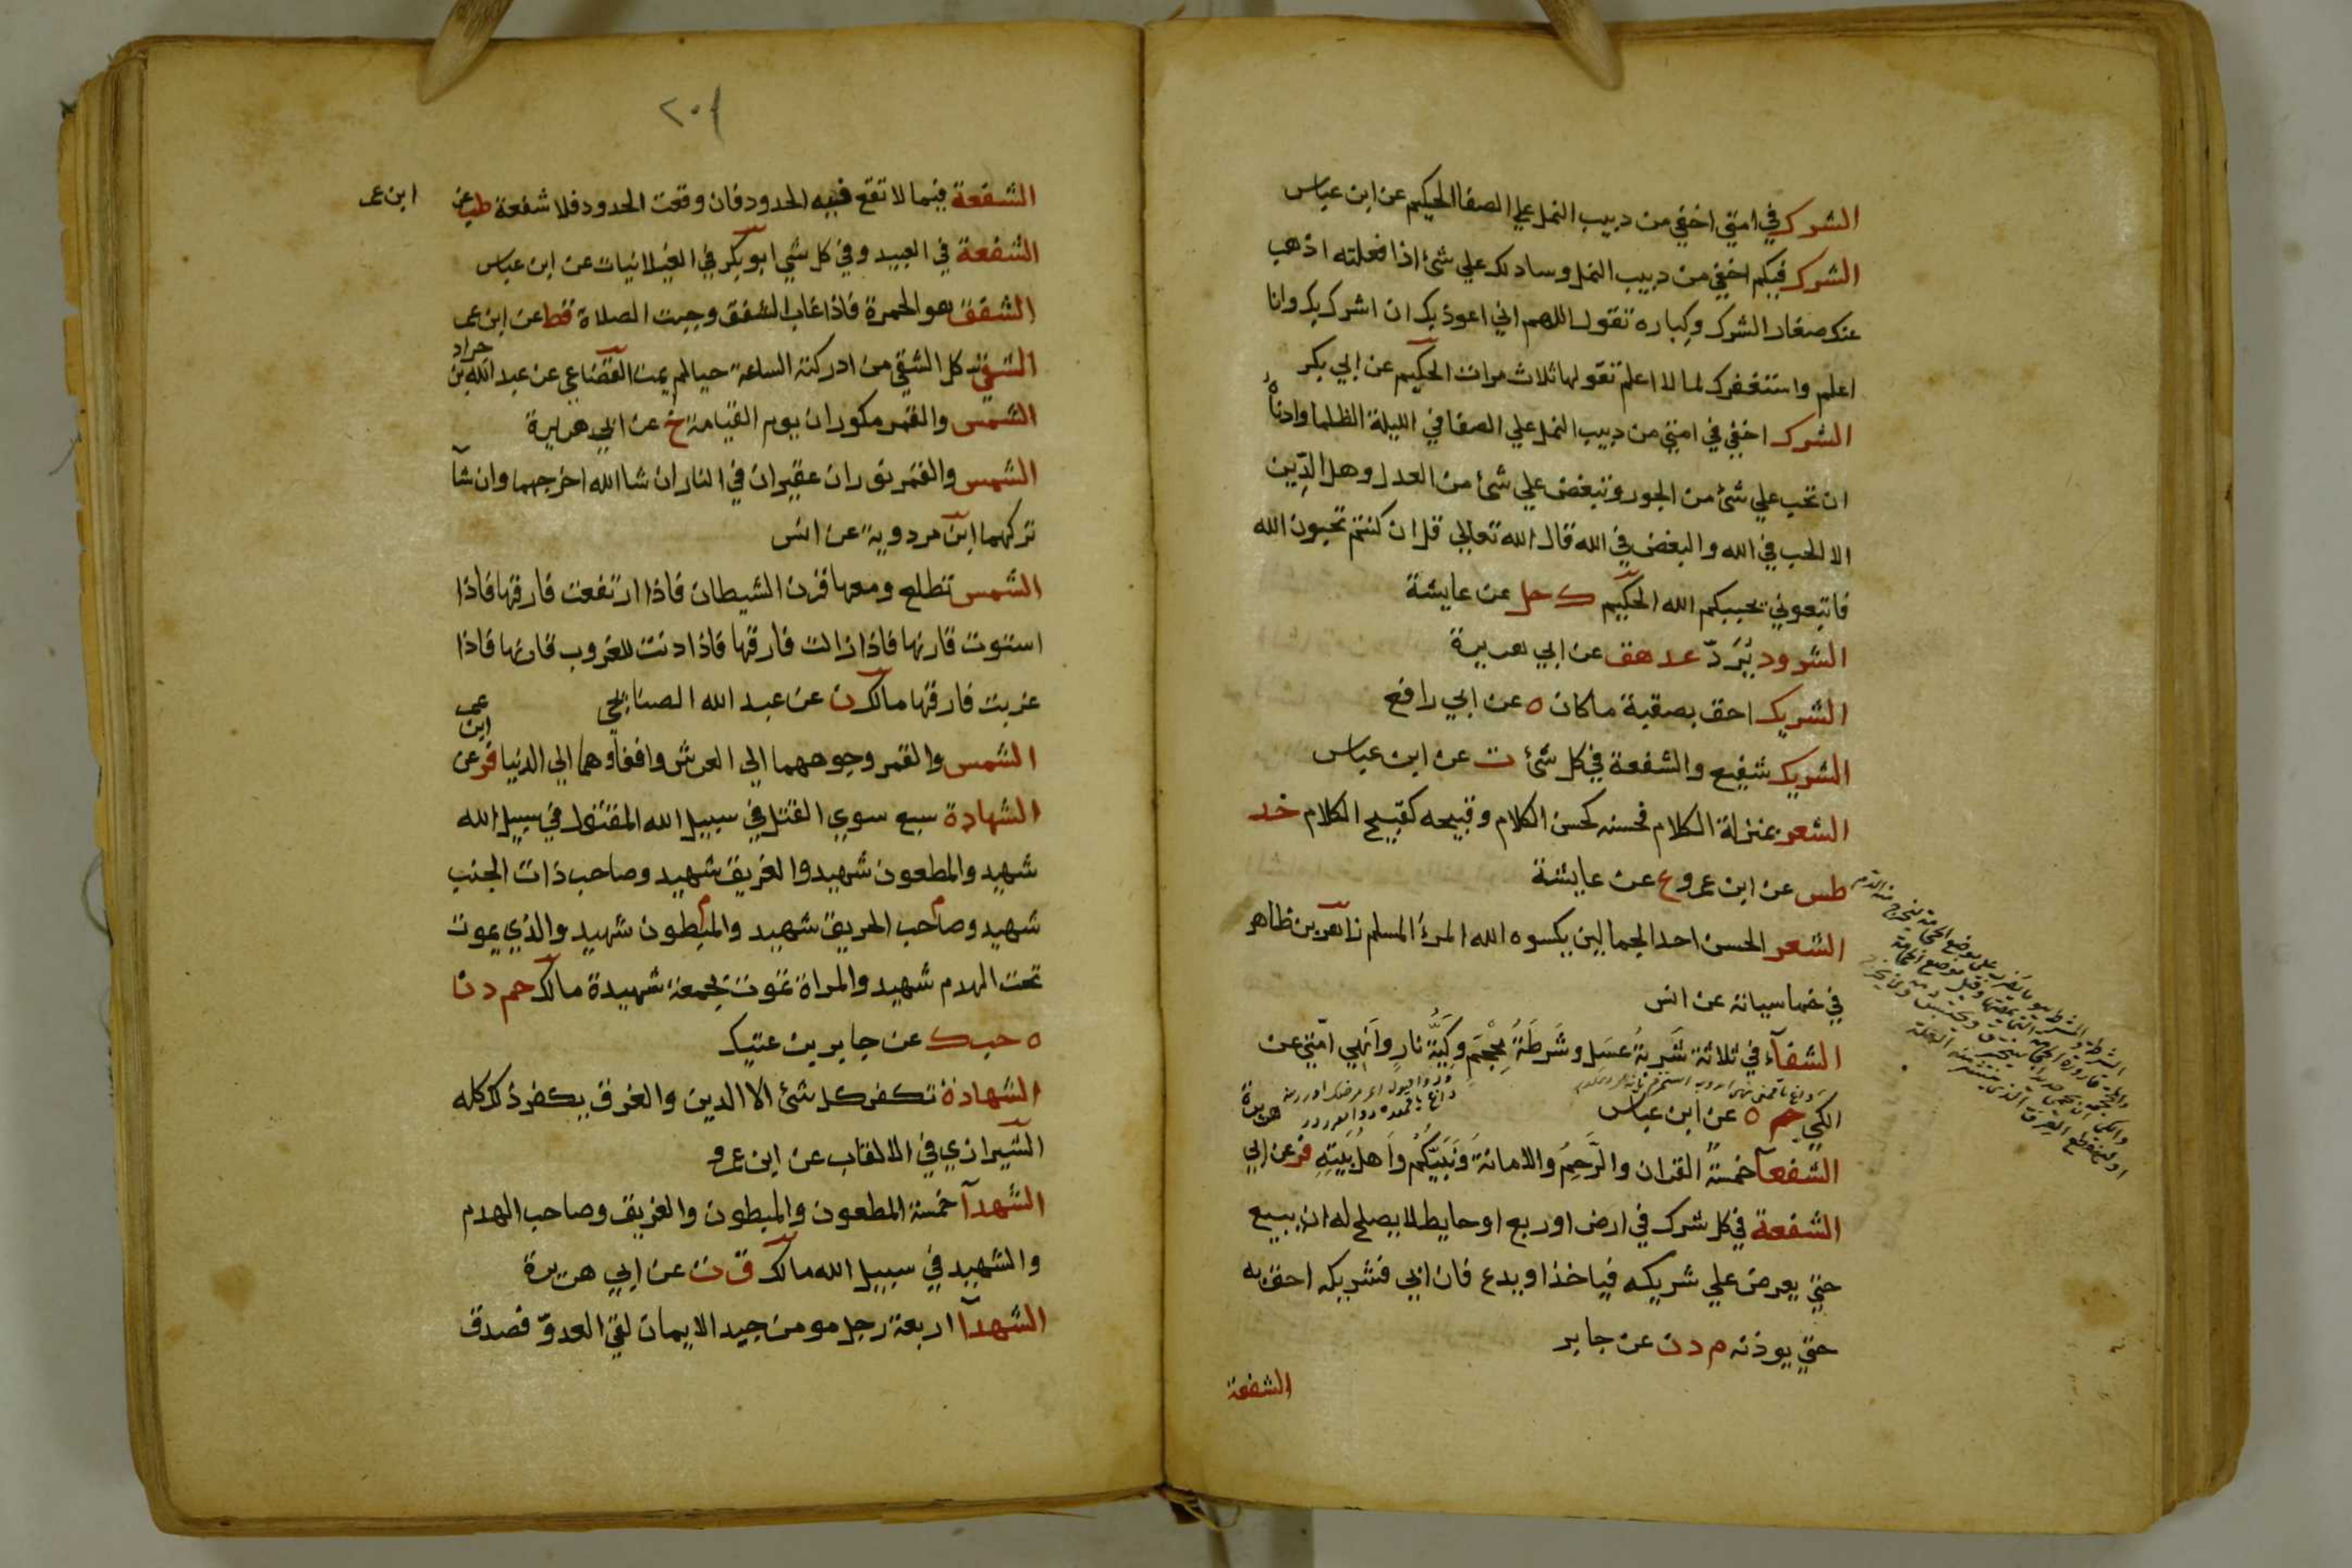 الشرك في امتي اخفي من دبيب النمل علي الصفا الحكيم عن ابن عباس
الشرك فيكم اخفي من دبيب النمل وسادلك علي شئ اذا فعلته اذهب
عنك صغار الشرك وكباره تقول اللهم اني اعوذ بك ان اشرك بك وانا
اعلم واستغفرك لما لا اعلم تقولها ثلاث مرات الحكيم عن ابي بكر
الشرك اخفي في امتي من دبيب النمل علي الصفا في الليلة الظلما وادناه
ان تحب علي شئ من الجور وتبغض علي شئ من العدل وهل الدين
الا الحب في الله والبغض في الله قال الله تعالي قل ان كنتم تحبون الله
فاتبعوني يحببكم الله الحكيم ك حل عن عايشة
الشرود يُرَدّ عد هق عن ابي هريرة
الشريك احق بصقبه ما كان ه عن ابي رافع
الشريك شفيع والشفعة في كل شئ ت عن ابن عباس
الشعر بمنزلة الكلام فحسنه كحسن الكلام وقبيحه كقبيح الكلام خد
طس عن ابن عمرو ع عن عايشة
الشعر الحسن احد الجمالين يكسوه الله المرء المسلم زاهر بن ظاهر
في خماسياته عن انس
الشفآء في ثلاثة شَربةُ عسَل وشَرطَةُ مِحْجَم وكَيَّةُ نارٍ وَانهي امّتي عن
الكي حم ه عن ابن عباس
الشفعآ خمسة القران والرَّحِمُ والامانة ونَبيّكُم واَهل بَيتِهِ فر عن ابي هريرة
الشفعة في كل شرك في ارض او ربع او حايط لا يصلح له ان يبيع
حتي يعرض علي شريكه فياخذ او يدع فان ابي فشريكه احق به
حتي يوذنه م د ن عن جابر
الشفعة
٢٠٤
الشفعة فيما لا تقع فيه الحدود فان وقعت الحدود فلا شفعة طب عن ابن عمر
الشفعة في العبيد وفي كل شي ابو بكر في الغيلانيات عن ابن عباس
الشفق هو الحمرة فاذا غاب الشفق وجبت الصلاة قط عن ابن عمر
الشقي كل الشقي من ادركته الساعة حيا لم يمت القضاعي عن عبد الله بن جراد
الشمس والقمر مكوران يوم القيامة خ عن ابي هريرة
الشمس والقمر ثوران عقيران في النار ان شا الله اخرجهما وان شآ
تركهما ابن مردوية عن انس
الشمس تطلع ومعها قرن الشيطان فاذا ارتفعت فارقها فاذا
استوت قارنها فاذا زالت فارقها فاذا دنت للغروب قارنها فاذا
غربت فارقها مالك ن عن عبد الله الصنابحي
الشمس والقمر وجوههما الي العرش واقفاوهما الي الدنيا فر عن ابن عمر
الشهادة سبع سوي القتل في سبيل الله المقتول في سبيل الله
شهيد والمطعون شهيد والغريق شهيد وصاحب ذات الجنب
شهيد وصاحب الحريق شهيد والمبطون شهيد والذي يموت
تحت الهدم شهيد والمراة تموت بجمعة شهيدة مالك حم د ن
ه حب ك عن جابر بن عتيك
الشهادة تكفر كل شئ الا الدين والغرق يكفر ذلك كله
الشيرازي في الالقاب عن ابن عمرو
الشهدآ خمسة المطعون والمبطون والغريق وصاحب الهدم
والشهيد في سبيل الله مالك ق ت عن ابي هريرة
الشهدآ اربعة رجل مومن جيد الايمان لقي العدوّ فصدق